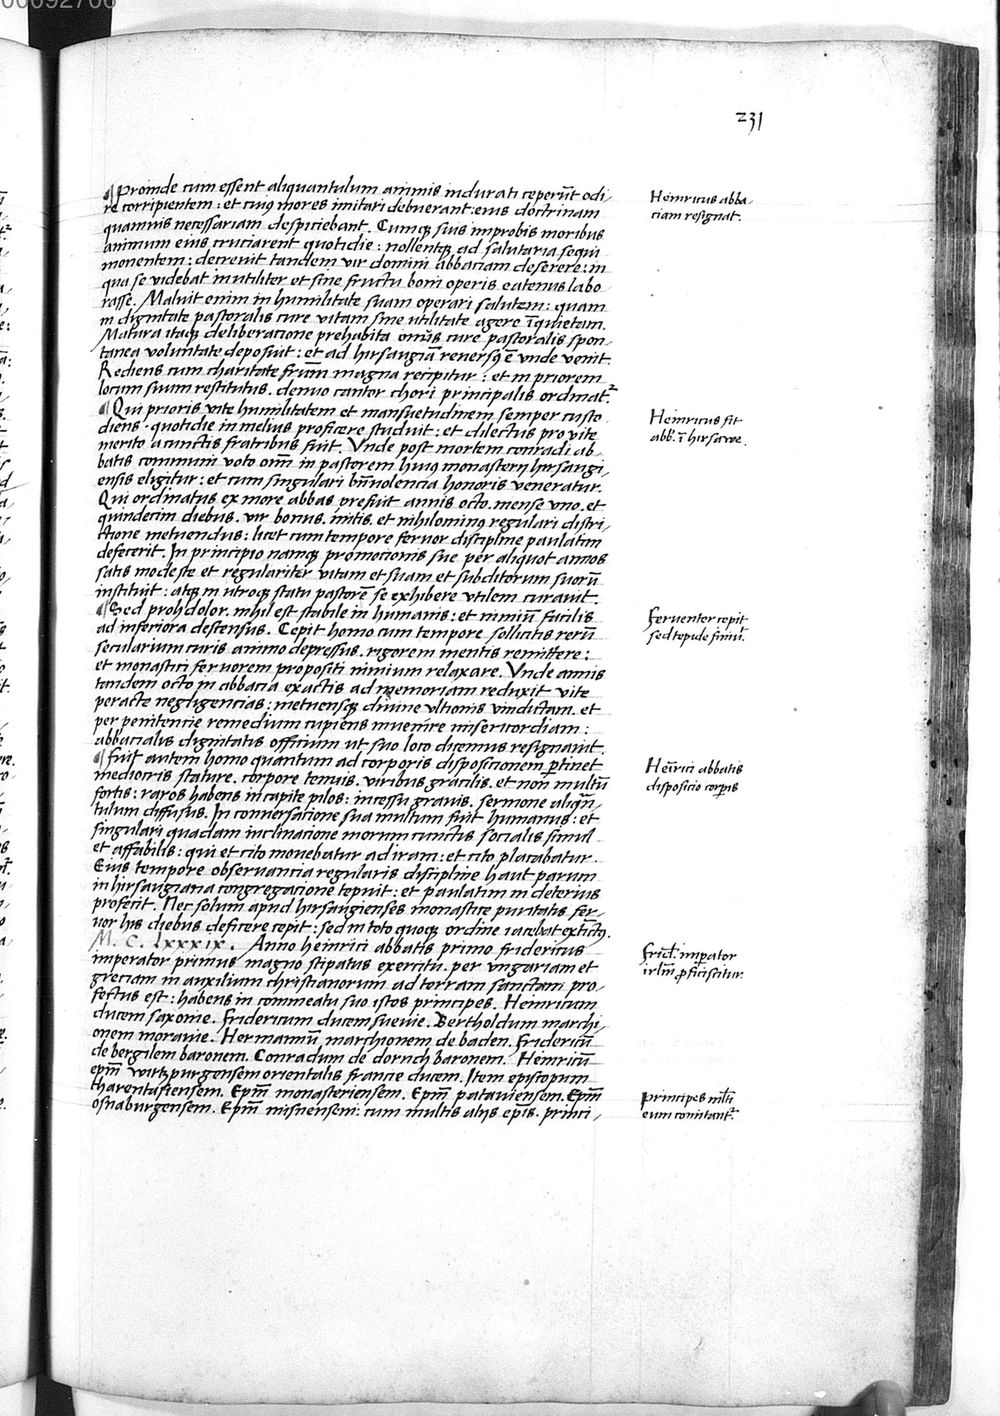 231
¶ Proinde cum essent aliquantulum animis indurati ceperũt odi-
re corripientem: et cuiꝰ mores imitari debuerant: eius doctrinam
quamuis necessariam despiciebant. Cumqȝ suis improbis moribus
animum eius cruciarent quotidie: nollentqȝ ad salutaria sequi
monentem: decreuit tandem vir domini abbaciam deserere: in
qua se videbat inutiliter et sine fructu boni operis eatenus labo
rasse. Maluit enim in humilitate suam operari salutem: quam
in dignitate pastoralis cure vitam sine utilitate agere ĩquietam.
Matura itaqȝ deliberacione prehabita onus cure pastoralis spon-
tanea voluntate deposuit: et ad hirsaugiã reuersꝰ ẽ vnde venit.
Rediens cum charitate frũm magna recipitur: et in priorem
locum suum restitutus. denuo cantor chori principalis ordinat᷑.
¶ Qui prioris vite humilitatem et mansuetudinem semper custo
diens. quotidie in melius proficere studuit: et dilectus pro vite
merito a cunctis fratribus fuit. Vnde post mortem conradi ab-
batis communi voto oĩm in pastorem huiꝰ monasterij hirsaugi-
ensis eligitur: et cum singulari bñuolencia honoris veneratur.
Qui ordinatus ex more abbas prefuit annis octo. mense vno. et
quindecim diebus. vir bonus. mitis. et nihilominꝰ regulari distri-
ctione metuendus: licet cum tempore feruor discipline paulatim
defecerit. In principio namqȝ promocionis sue per aliquot annos
satis modeste et regulariter vitam et suam et subditorum suorũ
instituit: atqȝ in utroqȝ statu pastorẽ se exhibere vtilem curauit.
¶ Sed proh dolor. nihil est stabile in humanis: et nimiũ facilis
ad inferiora descensus. Cepit homo cum tempore sollicitis rerũ
secularium curis animo depressus. rigorem mentis remittere:
et monastici feruorem propositi nimium relaxare. Vnde annis
tandem octo in abbacia exactis ad memoriam reduxit vite
peracte negligencias: metuensqȝ diuine vltionis vindictam. et
per penitencie remedium cupiens inuenire misericordiam:
abbacialis dignitatis officium ut suo loco dicemus resignauit.
¶ Fuit autem homo quantum ad corporis disposicionem p̱tinet
mediocris stature. corpore tenuis. viribus gracilis. et non multũ
fortis: raros habens in capite pilos: incessu grauis. sermone aliqñ-
tulum diffusus. In conuersacione sua multum fuit humanus: et
singulari quadam inclinacione morum cunctis socialis simul
et affabilis: qui et cito mouebatur ad iram: et cito placabatur.
Eius tempore obseruancia regularis discipline haut parum
in hirsaugiana congregacione tepuit: et paulatim in deterius
profecit. Nec solum apud hirsaugienses monastice puritatis fer-
uor his diebus deficere cepit: sed in toto quoqȝ ordine iacebat extictꝰ.
M. C. lxxxix. Anno heinrici abbatis primo fridericus
imperator primus magno stipatus exercitu. per vngariam et
greciam in auxilium christianorum ad terram sanctam pro-
fectus est: habens in commeatu suo istos principes. Heinricum
ducem saxonie. Fridericum ducem sueuie. Bertholdum marchi-
onem morauie. Hermannũ marchionem de baden. Fridericũ
de bergilem baronem. Conradum de dornch baronem. Heinricũ
ep̃m wirtzpurgensem orientalis francie ducem. Item episcopum
tharentasiensem. Ep̃m monasteriensem. Ep̃m patauiensem. Ep̃m
osnaburgensem. Ep̃m misnensem: cum multis alijs ep̃is. princi-
Heinricus abba-
ciam resignat.
Heinricus fit
abb. ĩ hirsawe.
Feruenter cepit
sed tepide finiuit.
Heĩrici abbatis
disposicio corp̱is
Frid. imp̱ator
irlm̃ p̱ficiscitur.
Principes mlti
eum comitant᷑.